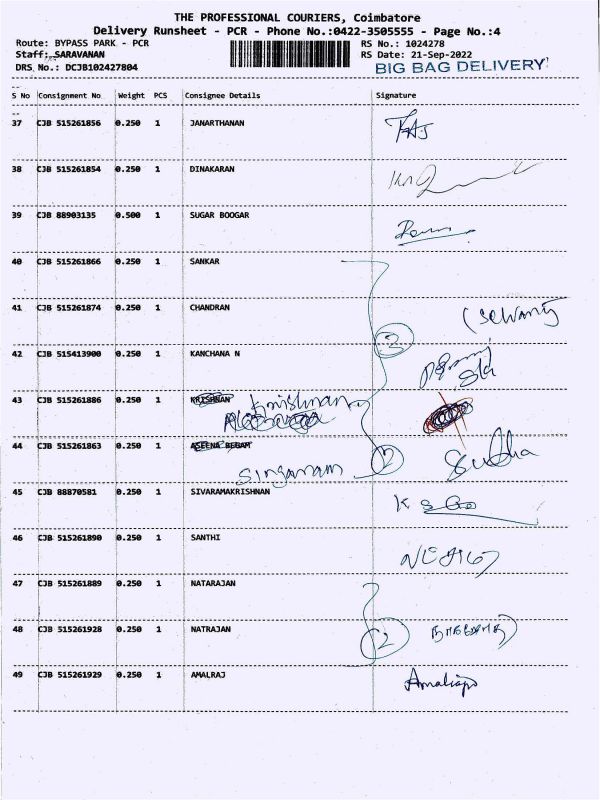 THE PROFESSIONAL COURIERS, Coimbatore
Delivery Runsheet - PCR - Phone No.:0422-3505555 - Page No.:4
Route: BYPASS PARK - PCR RS No.: 1024278
Staff: SARAVANAN RS Date: 21-Sep-2022
DRS No.: DCJB102427804 BIG BAG DELIVERY
S No Consignment No Weight PCS Consignee Details Signature
37 CJB 515261856 0.250 1 JANARTHANAN
38 CJB 515261854 0.250 1 DINAKARAN
39 CJB 88903135 0.500 1 SUGAR BOOGAR
40 CJB 515261866 0.250 1 SANKAR
41 CJB 515261874 0.250 1 CHANDRAN
3
42 CJB 515413900 0.250 1 KANCHANA N
43 CJB 515261886 0.250 1 KRISHNAN Krishnan
44 CJB 515261863 0.250 1 ASEENA BEGAM 2 Sudha
Singaram
45 CJB 88870581 0.250 1 SIVARAMAKRISHNAN
46 CJB 515261890 0.250 1 SANTHI
47 CJB 515261889 0.250 1 NATARAJAN
48 CJB 515261928 0.250 1 NATRAJAN 2
49 CJB 515261929 0.250 1 AMALRAJ